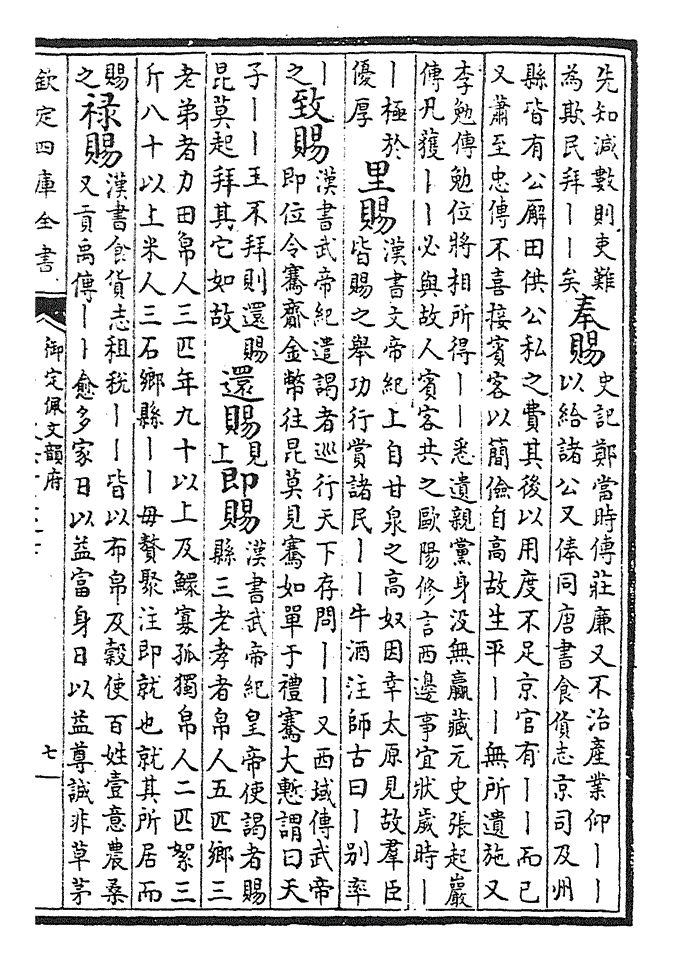 先知減數則吏難
為欺民拜丨丨矣
奉賜
史記鄭當時傳莊廉又不治產業仰丨丨
以給諸公又俸同唐書食貨志京司及州
縣皆有公廨田供公私之費其後以用度不足京官有丨丨而已
又蕭至忠傳不喜接賓客以簡儉自高故生平丨丨無所遺施又
李勉傳勉位將相所得丨丨悉遺親黨身没無贏藏元史張起巖
傳凡獲丨丨必與故人賓客共之歐陽修言西邊事宜狀歲時丨
丨極於
優厚
里賜
漢書文帝紀上自甘泉之高奴因幸太原見故羣臣
皆賜之舉功行賞諸民丨丨牛酒注師古曰丨別率
丨
之
致賜
漢書武帝紀遣謁者巡行天下存問丨丨又西域傳武帝
即位令騫齎金幣往昆莫見騫如單于禮騫大慙謂曰天
子丨丨王不拜則還賜
昆莫起拜其它如故
還賜
見
上
即賜
漢書武帝紀皇帝使謁者賜
縣三老孝者帛人五匹鄉三
老弟者力田帛人三匹年九十以上及鰥寡孤獨帛人二匹絮三
斤八十以上米人三石鄉縣丨丨毋贅聚注即就也就其所居而
賜
之
祿賜
漢書食貨志租稅丨丨皆以布帛及穀使百姓壹意農桑
又貢禹傳丨丨愈多家日以益富身日以益尊誠非草茅
欽定四庫全書
御定佩文韻府
七